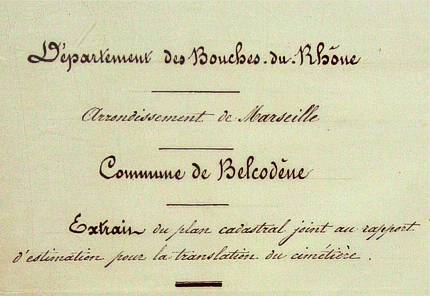 Département des Bouches-du-Rhône
Arrondissement de Marseille
Commune de Belcodène
Extrait du plan cadastral joint au rapport
d'estimation pour la translation du cimetière.